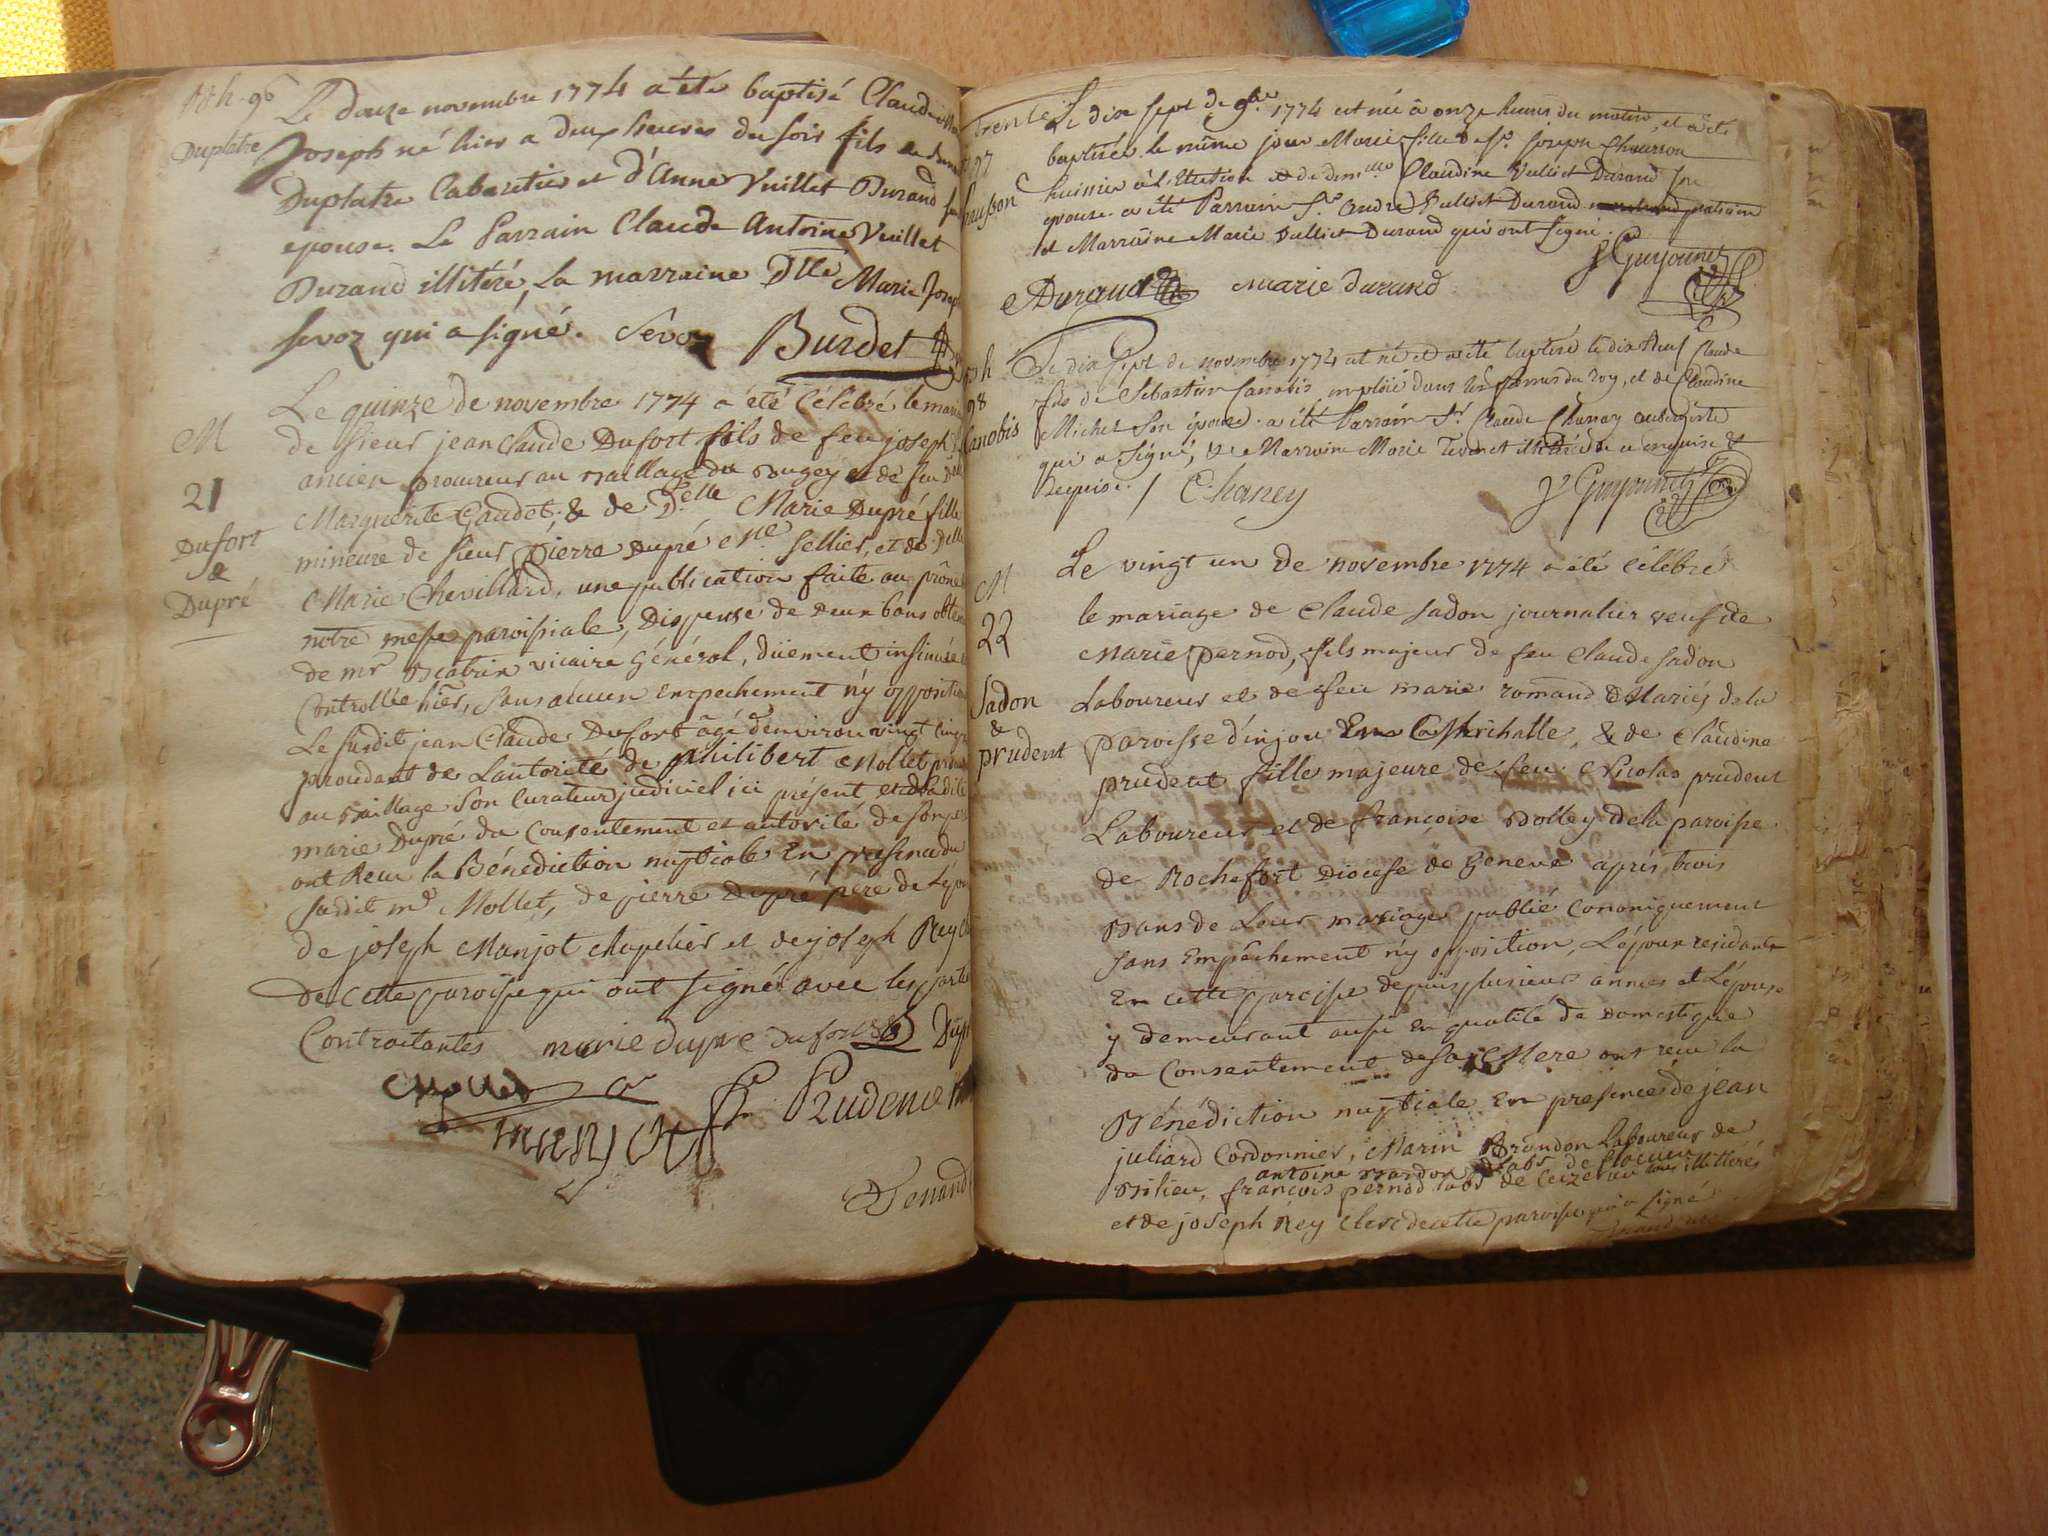 96
Duplatre
Le douze novembre 1774 a été baptisé Claude
Joseph né hier a deux heures du soir fils de
Duplatre Cabaretier et d'Anne Vuillet Durand
epouse. Le Parrain Claude Antoine Vuillet
Durand illitéré, La marraine Dlle Marie Josep
Sevoz qui a signé. Sevoz Burdet
M
21
Dufort
&
Dupré
Le quinze de novembre 1774 a été Célébré le maria
de sieur jean Claude Dufort fils de feu joseph
ancien procureur au Baillage du Bugey et de feu Dlle
Marguerite Gaudet & de Delle Marie Dupré fille
mineure de sieur Pierre Dupré me Sellier, et de Dlle
Marie Chevillard, une publication faite au prône
notre messe paroissiale, Dispense de deux bans obten
de mr Scatrin vicaire Général, düement insinuée
Controllée hier, sans aucun Empechement n'y opposition
Le susdit jean Claude Dufort agé d'environ vingt cinq
procedant de Lautorité de philibert Mollet
au Baillage son Curateur judiciel ici présent et la dite
marie Dupré du Consentement et autorité de son pere
ont Reçu la Bénédiction nuptiale En presence du
susdit mr Mollet, de pierre Dupré père de L'épou
de joseph Manjot Chapelier et de joseph Rey
de cette paroisse qui ont signé avec les parties
Contractantes marie dupre Dufort Dupr
Mollet
manjot Pr Prudence
Denand
trente
97
Le dix sept de 9bre 1774 est née à onze heures du matin, et a été
baptisée le même jour Marie fille de Sr. Joseph Chausson
huissier à l'Election et de demlle Claudine Vulliet Durand son
epouse. a été Parrain Sr. André Vulliet Durand
et Marraine Marie Vulliet Durand qui ont signé.
Durand marie durand J Guyounet
98
Canobis
Le dix sept de novembre 1774 est né et a été baptisé le dix neuf Claude
fils de Sebastien Canobis emploié dans les fermes du Roy, et de Claudine
Michet son épouse. a été Parrain Sr. Claude Chaney aubergiste
qui a signé, et Marraine Marie Tevenet illitérée de ce enquise &
Requise. / Chaney J Guyounet
M
22
Sadon
&
prudent
Le vingt un de novembre 1774 a été célébré
le mariage de Claude Sadon journalier veuf de
Marie pernod, fils majeur de feu Claude Sadon
Laboureur et de feu marie romand Mariés de la
paroisse d'injou En Michalle, & de Claudine
prudent fille majeure de feu Nicolas prudent
Laboureur et de françoise Bolley de la paroisse
de Rochefort Diocese de Geneve après trois
Bans de Leur mariage publié Canoniquement
sans Empêchement n'y opposition, L'époux residant
En cette paroisse depuis plusieurs années et L'épouse
y demeurant aussi En qualité de Domestique
du Consentement de sa Mere ont reçu la
Bénédiction nuptiale En presence de jean
juliard Cordonnier, Marin Brandon Laboureur de
antoine Bardon labr de
Bilieu, françois pernod labr de Ceizerieu tous illitérés
et de joseph Rey Clerc de cette paroisse qui a signé